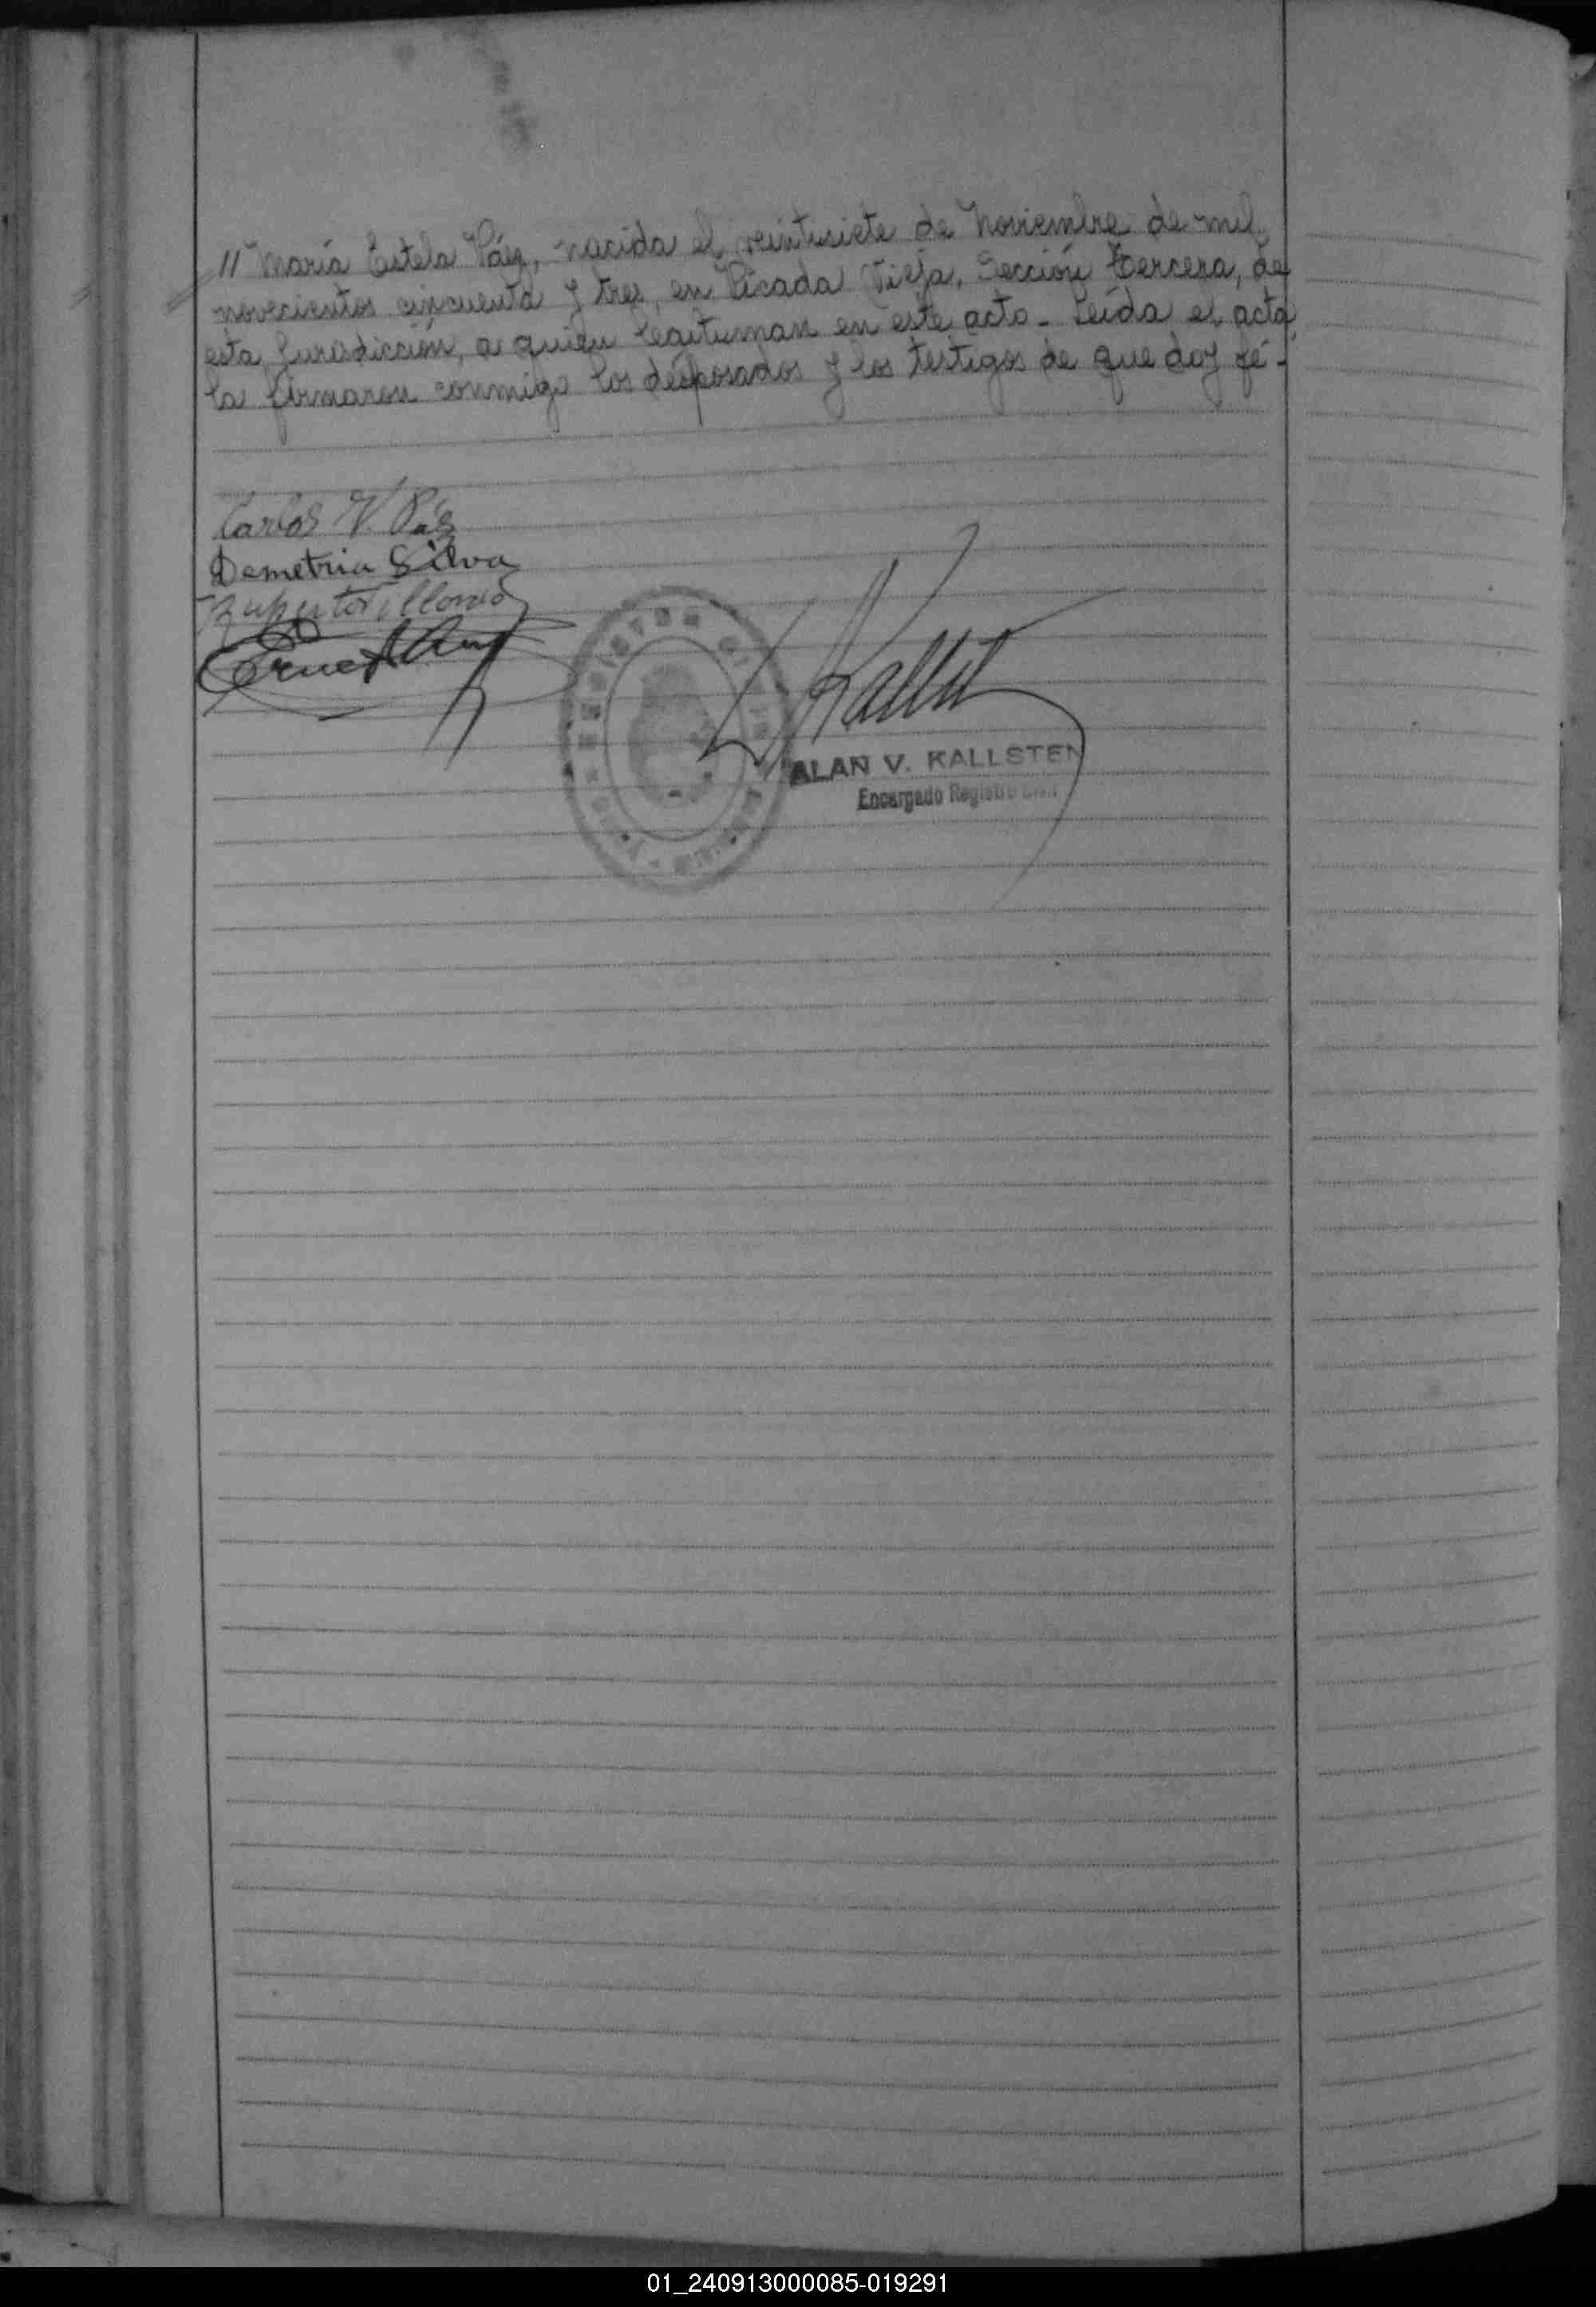 // María Estela Páez, nacida el veintisiete de Noviembre de mil
novecientos cincuenta y tres, en Picada Vieja, Sección Tercera, de
esta Jurisdicción, a quien legitiman en este acto._ Leída el acta
la firmaron conmigo los desposados y los testigos de que doy fé.-
Carlos V. Páez
Demetria Silva
Ruperto
REGISTRO CIVIL
ALAN V. KALLSTEN
Encargado Registro Civil
01_240913000085-019291